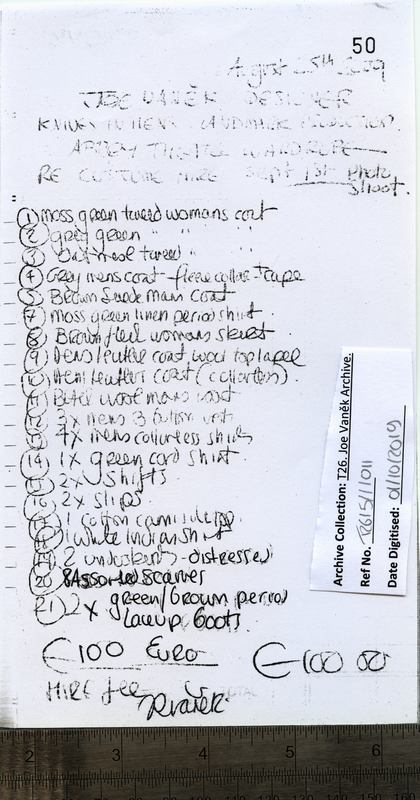 50
August 25th 2009
JOE VANĚK DESIGNER
KNIVES IN HENS LANDMARK PRODUCTION.
ABBEY THEATRE WARDROBE
RE COSTUME HIRE Sept 1st Photo
Shoot.
① moss green tweed womans coat
② grey green " " "
③ Oatmeal tweed " "
④ Grey mens coat - fleece collar + cape
⑤ Brown Suede mans coat
⑦ moss green linen period shirt.
⑧ Brown womans skirt
⑨ Mens leather coat, wool top lapel
⑩ Mens leather coat (collarless).
⑪ wool mans coat
⑫ 3x mens 3 button vest
⑬ 4x mens collarless shirts
⑭ 1x green cord shirt.
⑮ 2x shifts
⑯ 2x slips
1 cotton camisole top
1 white shirt
2 underskirts - distressed
⑳ Assorted scarves
㉑ 2x green/brown period
laceup boots
€100 Euro €100 00
HIRE fee
JVaněk
Archive Collection: T26. Joe Vaněk Archive.
Ref No.
Date Digitised: 01/10/2019
2 3 4 5 6